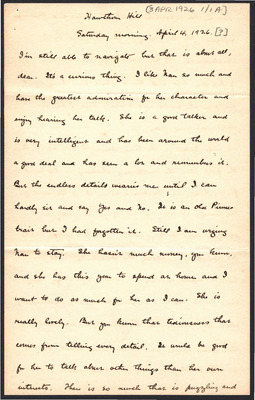 [3 APR 1926 1/1A]
Hawthorn Hill
Saturday morning. April 4, 1926. [?]
I'm still able to navigate but that is about all,
dear. It's a curious thing. I like Nan so much and
have the greatest admiration for her character and
enjoy hearing her talk. She is a good talker and
is very intelligent and has been around the world
a good deal and has seen a lot and remembers it.
But the endless details wearies me until I can
hardly sit and say Yes and No. It is an old
trait but I had forgotten it. Still I am urging
Nan to stay. She hasn't much money, you know,
and she has this year to spend at home and I
want to do as much for her as I can. She is
really lovely. But you know that tediousness that
comes from telling every detail. It would be good
for her to talk about other things than her own
interests. There is so much that is puzzling and